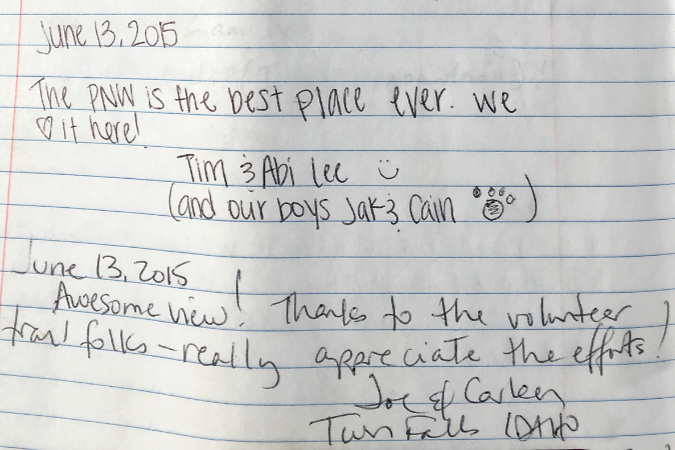 June 13, 2015
The PNW is the best place ever. We
♡ it here!
Tim & Abi Lee ☺
(and our boys Jak & Cain 🐾)
June 13, 2015
Awesome view! Thanks to the volunteer
trail folks – really appreciate the efforts!
Joe & Carley
Twin Falls IDAHO